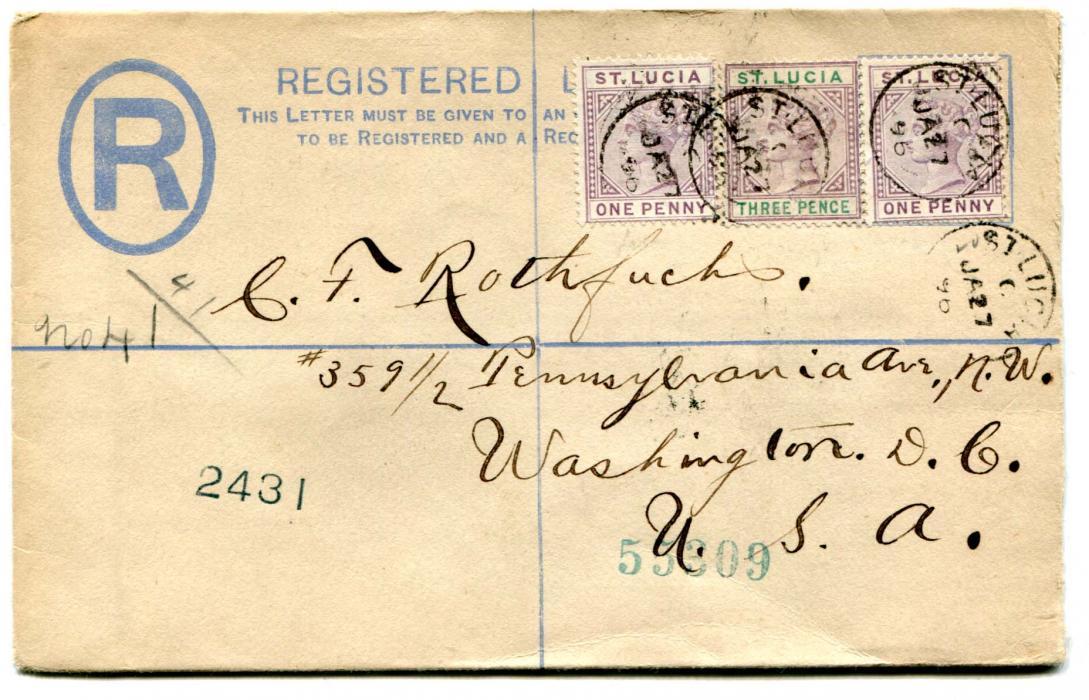 R
REGISTERED L
THIS LETTER MUST BE GIVEN TO AN
TO BE REGISTERED AND A REC
ST. LUCIA
ONE PENNY
ST. LUCIA
THREE PENCE
ST. LUCIA
ONE PENNY
ST. LUCIA
C
JA 27
96
ST. LUCIA
C
JA 27
ST. LUCIA
C
JA 27
96
ST. LUCIA
C
JA 27
96
41
No 41
C. F. Rothfuchs.
#359 1/2 Pennsylvania Ave., N.W.
Washington. D. C.
U. S. A.
2431
55309